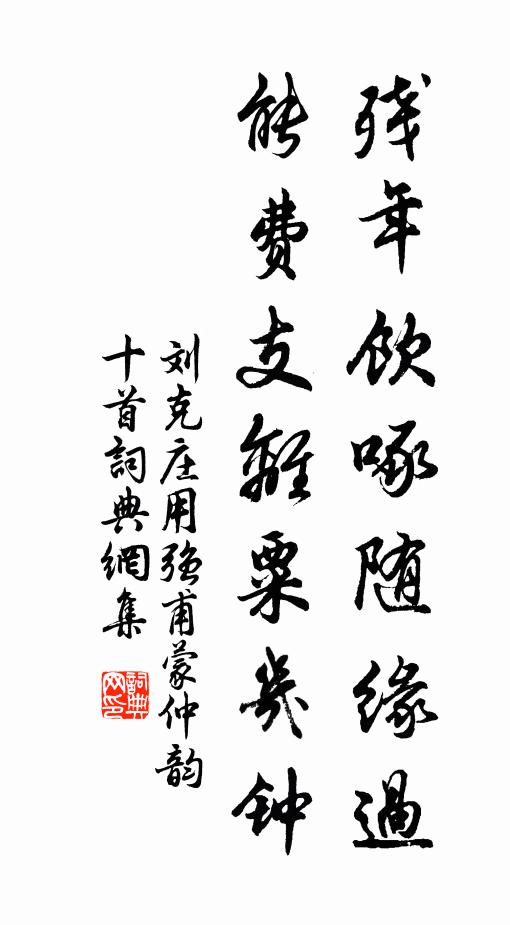 残年饮啄随缘過
能费支離粟幾钟
刘克庄用强甫蒙仲韵
十首詞典網集
詞典网印